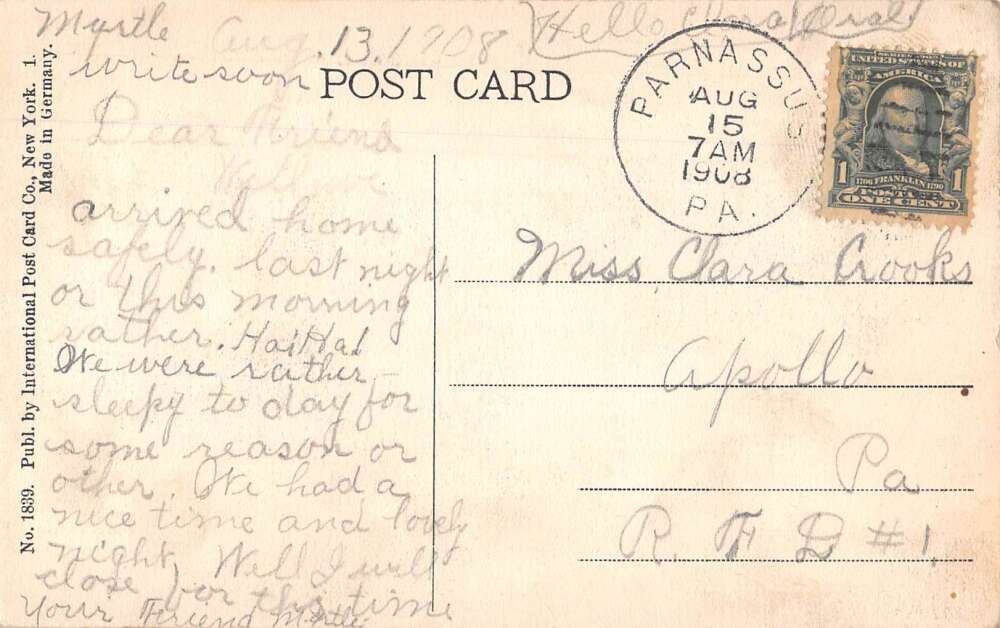 Myrtle
write soon
Aug. 13. 1908
Hello Clara
POST CARD
Dear Friend
Well we
arrived home
safely. last night
or this morning
rather. Ha! Ha!
We were rather
sleepy to day for
some reason or
other. We had a
nice time and lovely
night. Well I will
close for this time
Your Friend Myrtle
No. 1839. Publ. by International Post Card Co., New York. 1.
Made in Germany.
PARNASSUS
AUG
15
7 AM
1908
PA.
UNITED STATES OF
AMERICA
1 FRANKLIN 1
POSTAGE
ONE CENT
Miss, Clara Crooks
Apollo
Pa
R. F D #1.